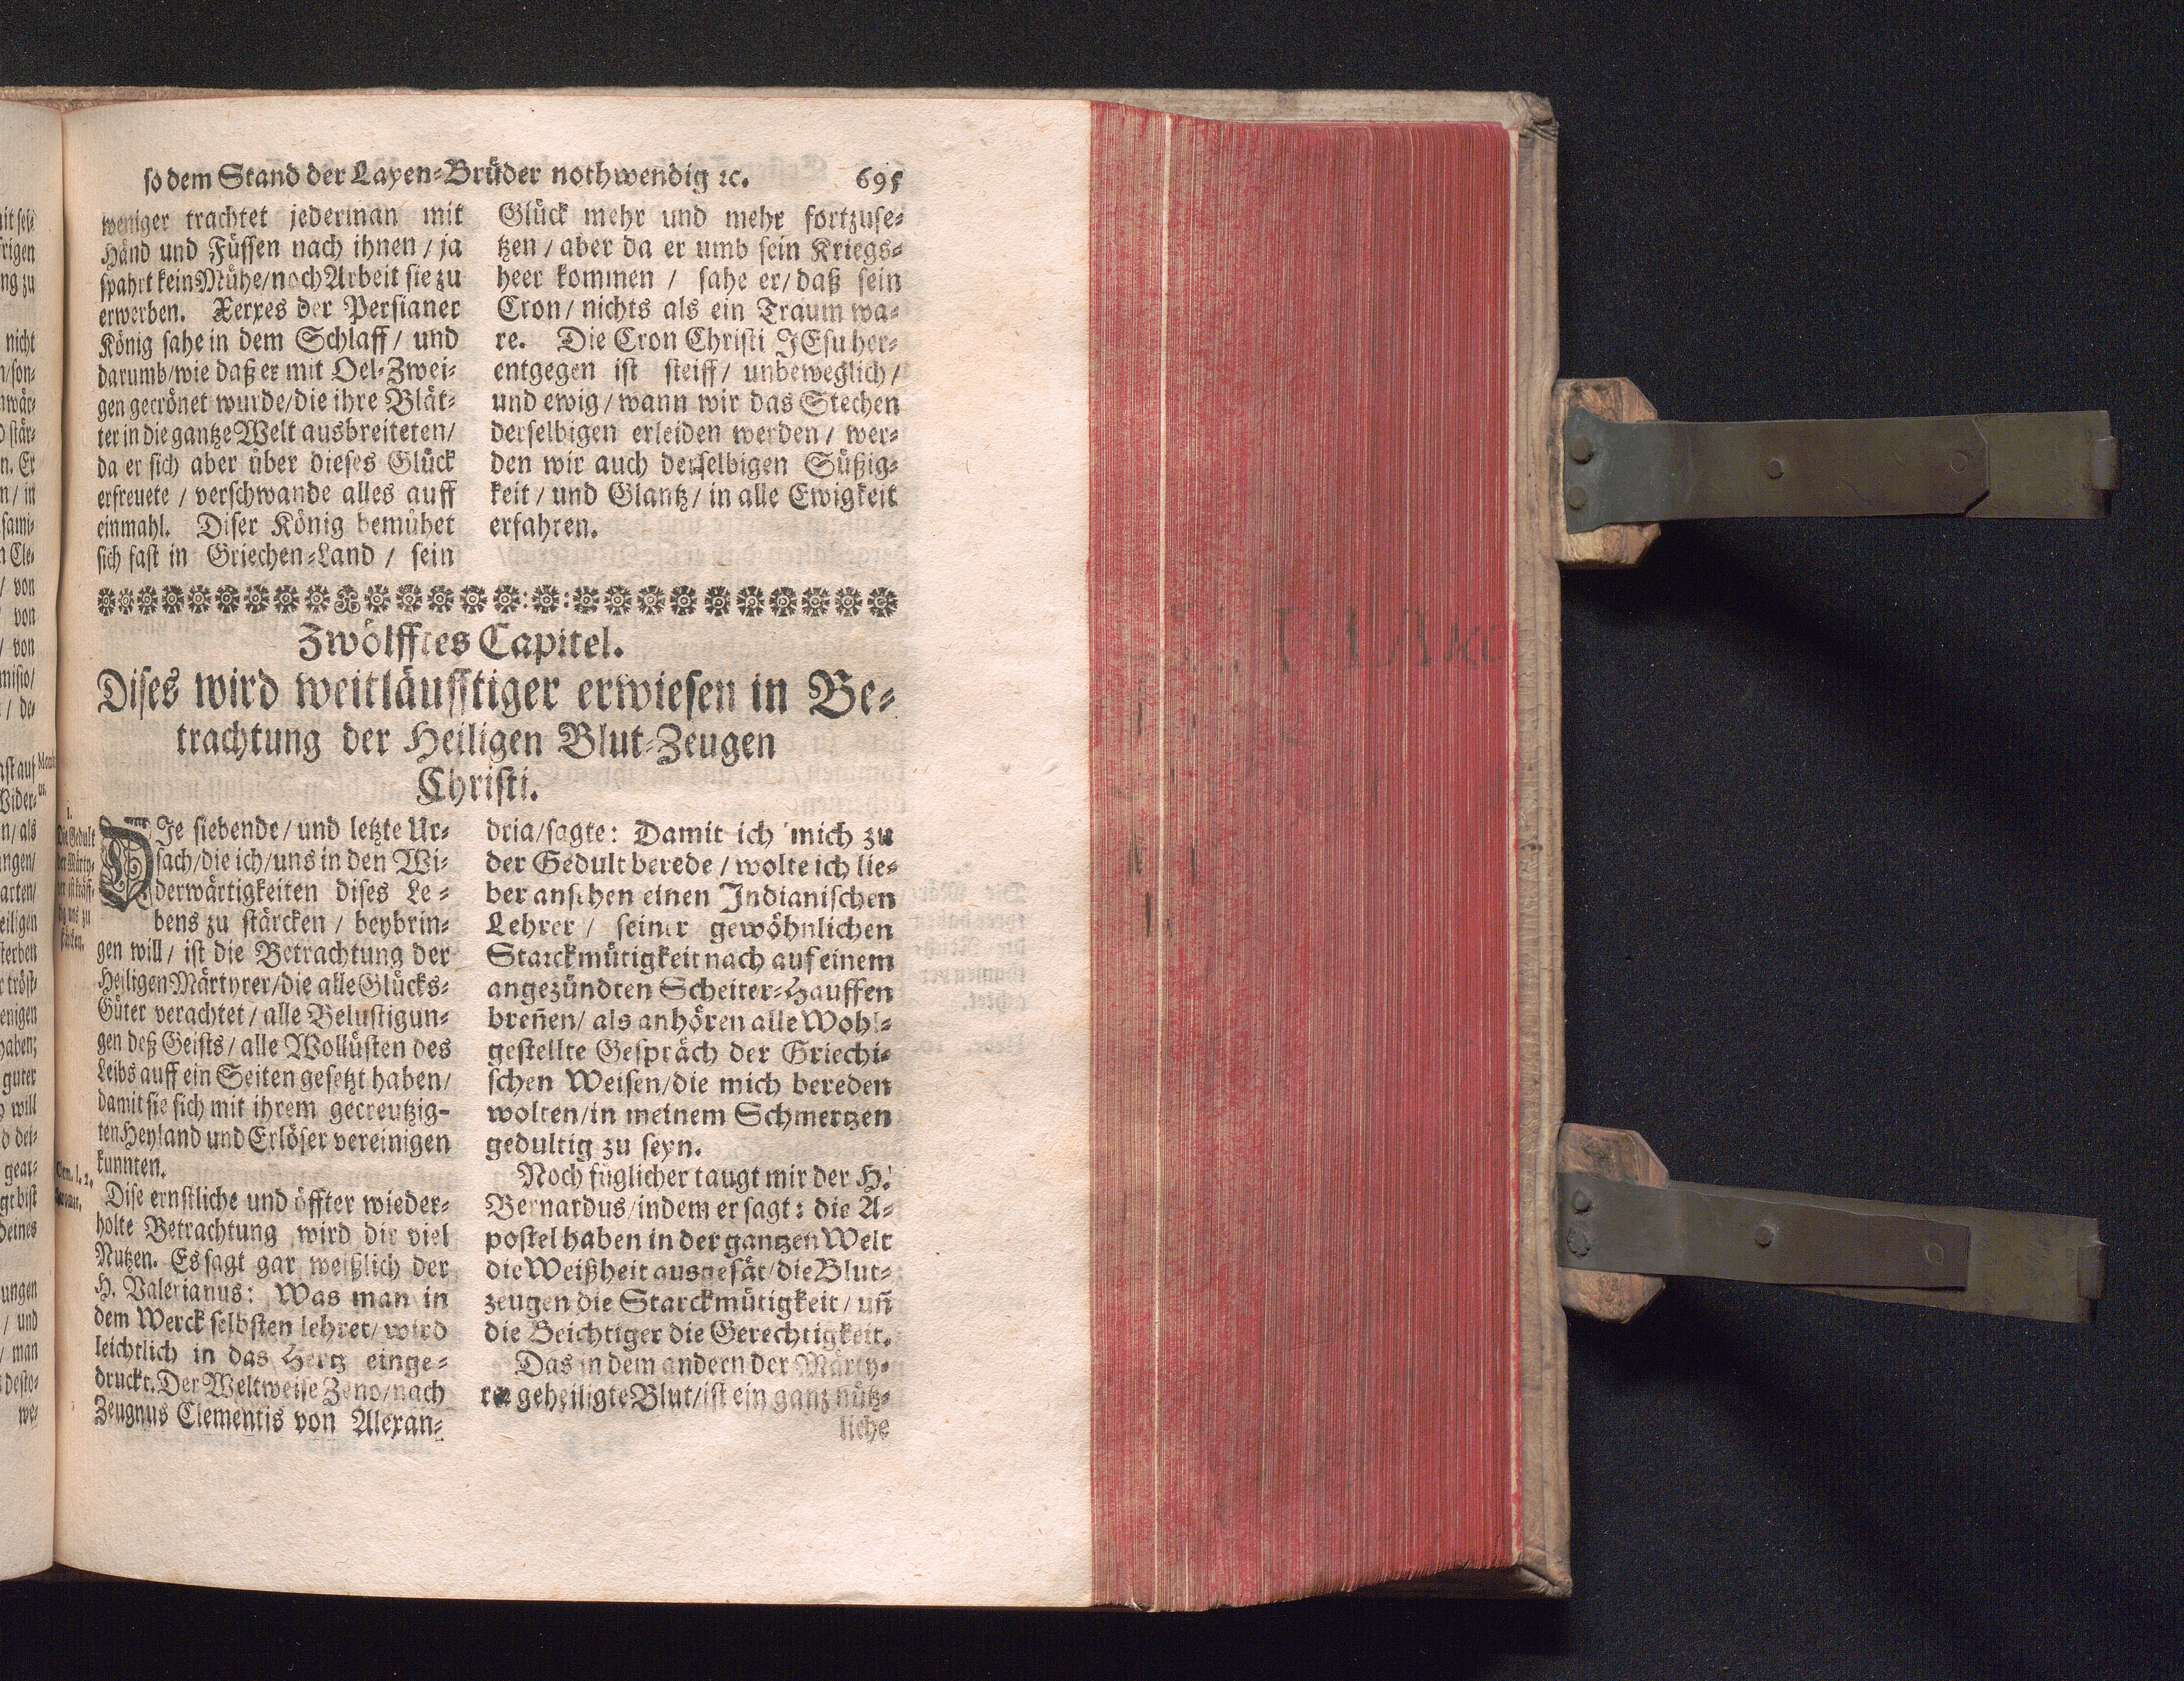 so dem Stand der Layen-Brüder nothwendig ꝛc. 695
weniger trachtet jederman mit
Händ und Füssen nach ihnen / ja
spahrt kein Mühe/noch Arbeit sie zu
erwerben. Xerxes der Persianer
König sahe in dem Schlaff / und
darumb/wie daß er mit Oel-Zwei-
gen gecrönet wurde/die ihre Blät-
ter in die gantze Welt ausbreiteten/
da er sich aber über dieses Glück
erfreuete / verschwande alles auff
einmahl. Diser König bemühet
sich fast in Griechen-Land / sein
Glück mehr und mehr fortzuse-
tzen / aber da er umb sein Kriegs-
heer kommen / sahe er/daß sein
Cron/ nichts als ein Traum wa-
re. Die Cron Christi JEsu her-
entgegen ist steiff/ unbeweglich/
und ewig / wann wir das Stechen
derselbigen erleiden werden / wer-
den wir auch derselbigen Süßig-
keit / und Glantz/ in alle Ewigkeit
erfahren.
Zwölfftes Capitel.
Dises wird weitläufftiger erwiesen in Be-
trachtung der Heiligen Blut-Zeugen
Christi.
1.
Die Gedult
der Märty-
rer ist kräff-
tig uns zu
stärcken.
DIe siebende/ und letzte Ur-
sach/die ich/uns in den Wi-
derwärtigkeiten dises Le-
bens zu stärcken / beybrin-
gen will / ist die Betrachtung der
Heiligen Märtyrer/die alle Glücks-
Güter verachtet / alle Belustigun-
gen deß Geists / alle Wollüsten des
Leibs auff ein Seiten gesetzt haben/
damit sie sich mit ihrem gecreutzig-
ten Heyland und Erlöser vereinigen
kunnten.
Dise ernstliche und öffter wieder-
holte Betrachtung wird dir viel
Nutzen. Es sagt gar weißlich der
H. Valerianus: Was man in
dem Werck selbsten lehret/ wird
leichtlich in das Hertz einge-
druckt. Der Weltweise Zeno/nach
Zeugnus Clementis von Alexan-
dria/sagte: Damit ich mich zu
der Gedult berede / wolte ich lie-
ber ansehen einen Indianischen
Lehrer / seiner gewöhnlichen
Starckmütigkeit nach auf einem
angezündten Scheiter-Hauffen
breñen/ als anhören alle Wohl-
gestellte Gespräch der Griechi-
schen Weisen/die mich bereden
wolten/in meinem Schmertzen
gedultig zu seyn.
Noch füglicher taugt mir der H.
Bernardus/indem er sagt: die A-
postel haben in der gantzen Welt
die Weißheit ausgesät/die Blut-
zeugen die Starckmütigkeit / uñ
die Beichtiger die Gerechtigkeit.
Das in dem andern der Märty-
rer geheiligte Blut/ist ein ganz nütz-
liche